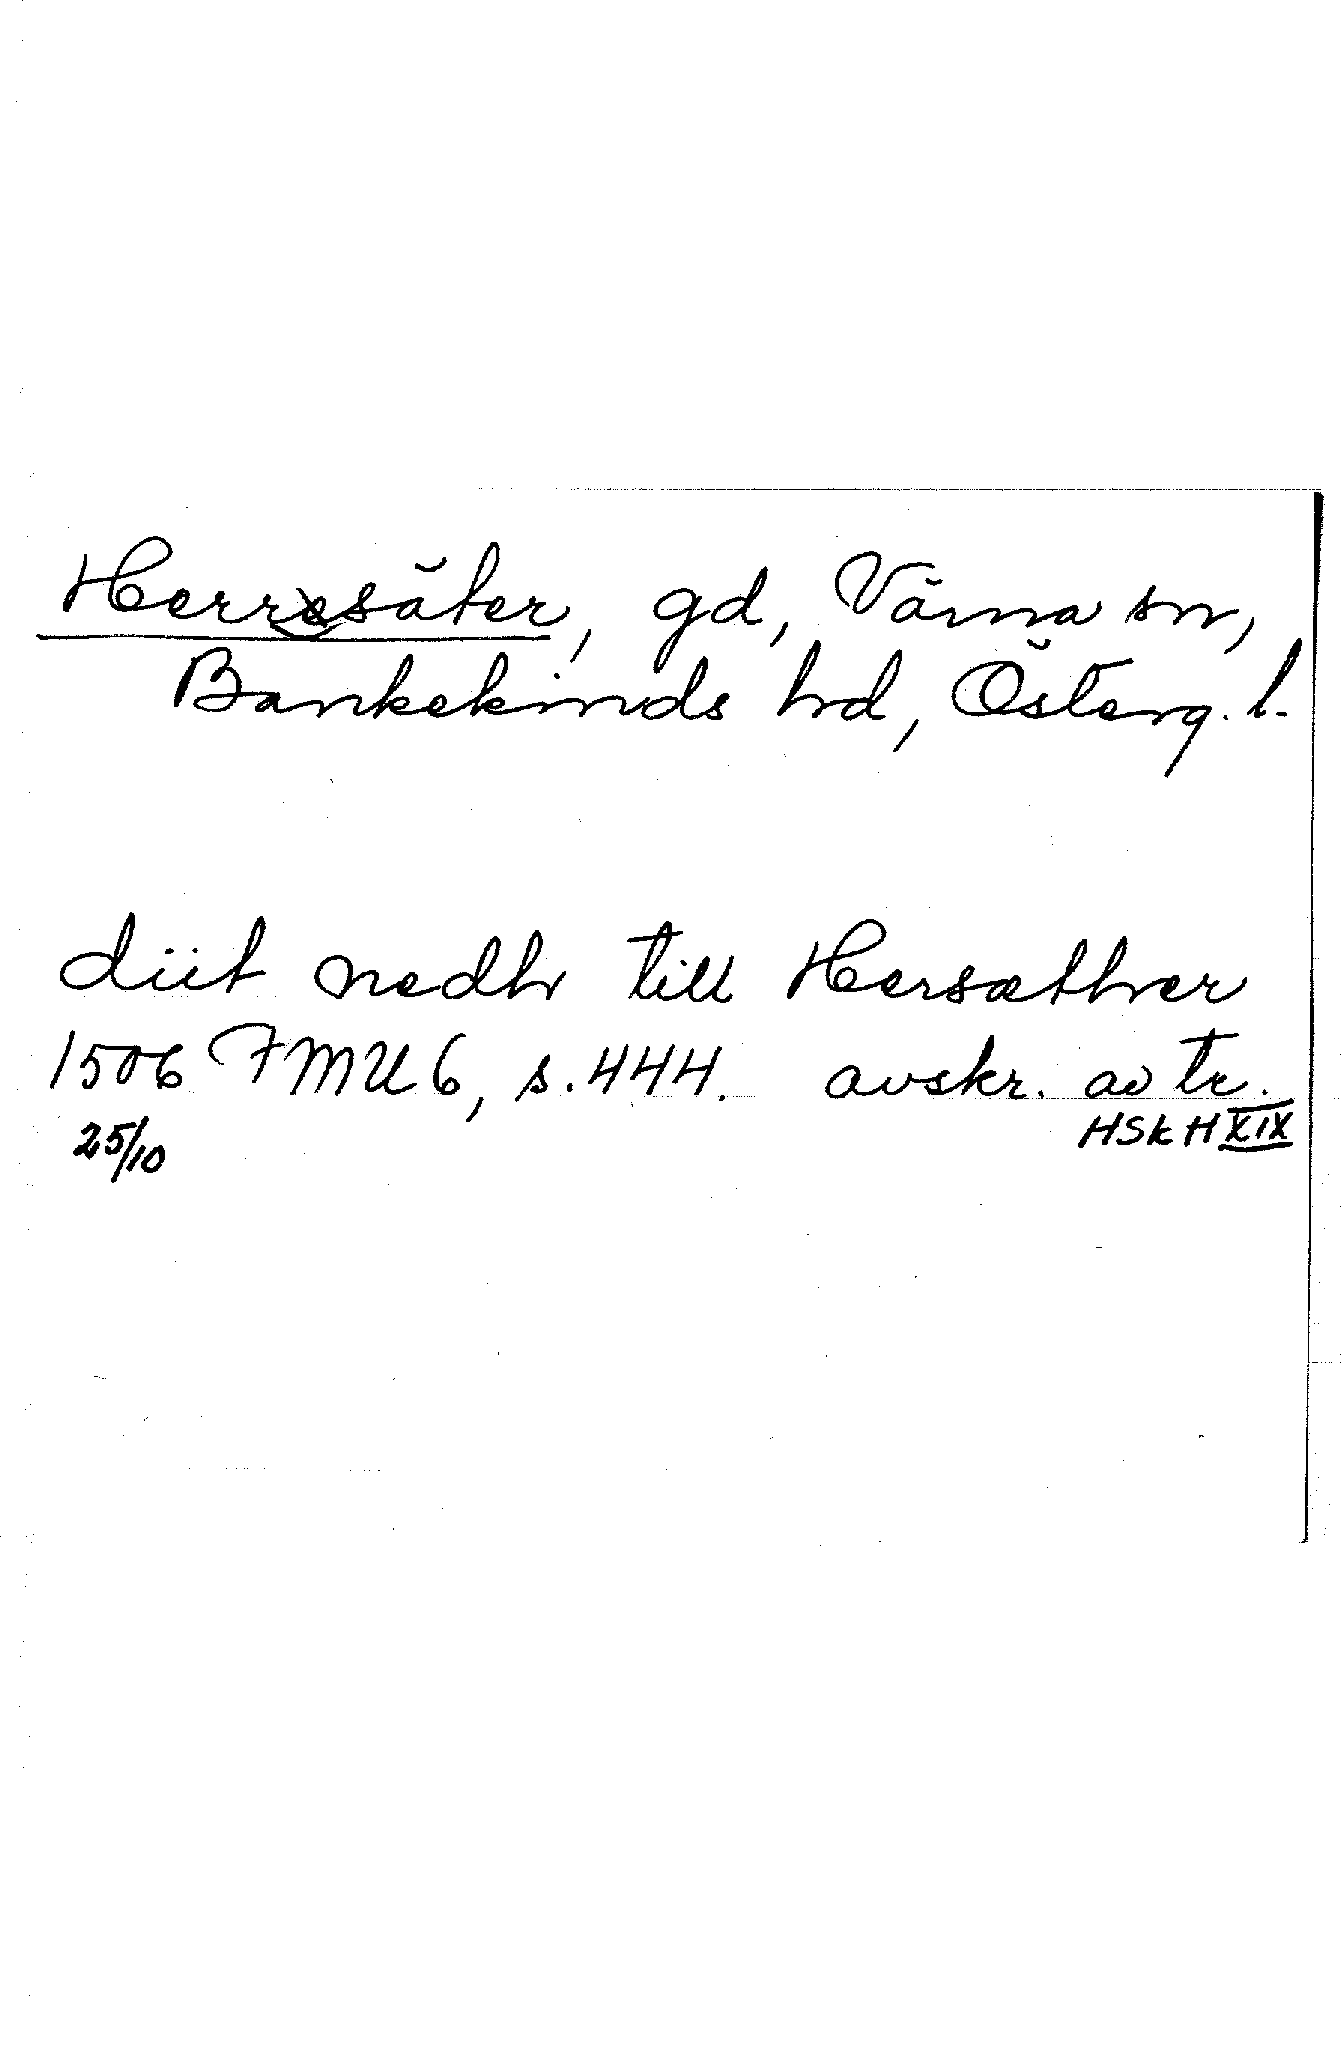 Herrsäter, gd, Värna sn,
Bankekinds hd, Österg. l.
diit nedh till Hersæther
1506 FMU 6, s. 444. avskr. av tr.
25/10 HSkH XIX